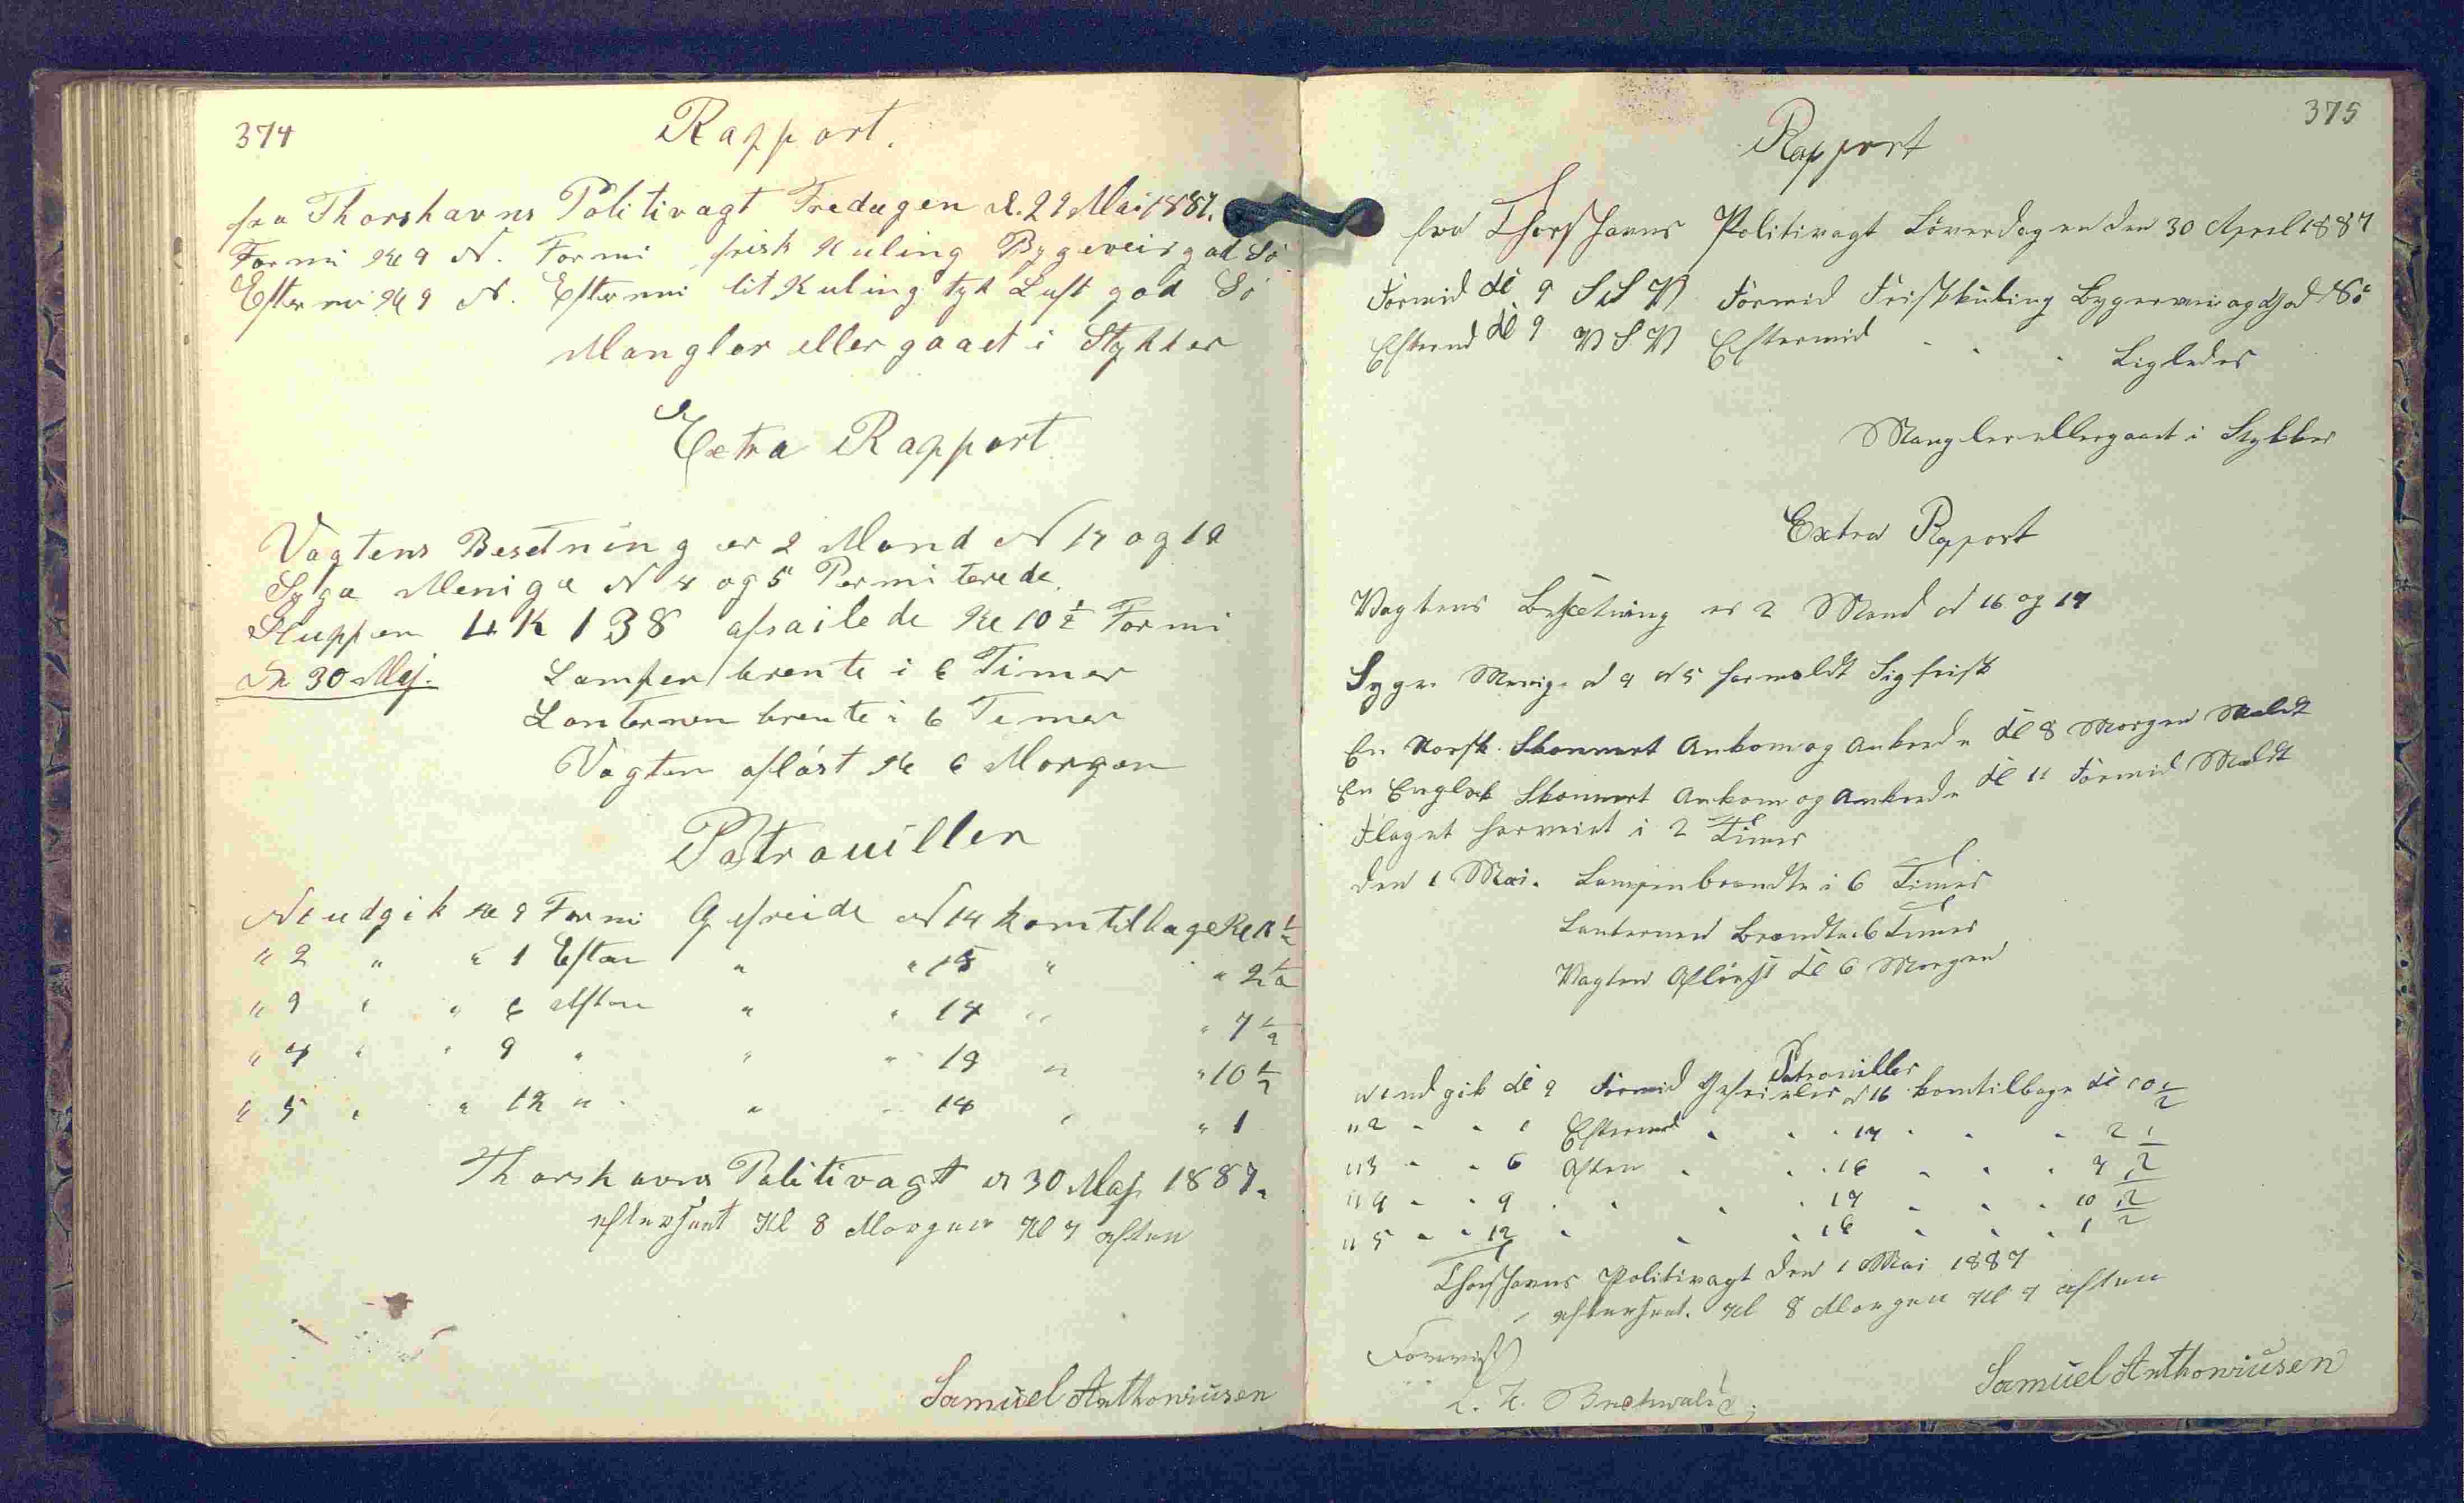 374
Rapport.
fra Thorshavns Politivagt Fredagen d. 29 Mai 1887.
Formi Kl 9 N. Formi frisk Kuling Bygeveir god Sö
Eftermi Kl 9 N. Eftermi lit Kuling tyk Luft god Sö
Mangler eller gaaet i Stykker
Extra Rapport
Vagtens Besetning er 2 Mand N 14 og 18
Syge Menige N 4 og 5 Permiterede
Sluppen LK 138 afsailede Kl 10 1/2 Formi
Dn 30 Maj. Lampen brente i 6 Timer
Lanternen brente i 6 Timer
Vagten aflöst Kl 6 Morgen
Patrouiller
N 1 udgik Kl 9 Formi Gefreide N 14 kom tilbage Kl 10 1/2
" 2 " " 1 Efter " " 15 " " 2 1/2
" 3 " " 6 Aften " " 14 " " 7 1/2
" 4 " " 9 " " " 19 " " 10 1/2
" 5 " " 12 " " " 14 " " 1
Thorshavns Politivagt d 30 Maj 1887.
efterseet Kl 8 Morgen Kl 7 aften
Samuel Anthoniusen
375
Rapport
fra Thorshavns Politivagt Löverdagen den 30 April 1887
Formid Kl 9 SSV Formid Friskkuling Bygeveir og God Sö
Eftermd Kl 9 VSV Eftermid " " " Ligledes
Mangler ellergaaet i Stykker
Extra Rapport
Vagtens Besætning er 2 Mand N 16 og 17
Syge Menige N 4 N 5 harmeldt Sig frisk
En Norsk Skonnert Ankom og Ankrede Kl 8 Morgen Meldt
En Englesk Skonnert Ankom og Ankrede Kl 11 Formid Meldt
Flaget harveiet i 2 Timer
den 1 Mai. Lampen brændte i 6 Timer
Lanternen Brændte i 6 Timer
Vagten Aflöist Kl 6 Morgen
Patrouiller
N 1 udgik Kl 9 Formid Gefreider N 16 komtilbage Kl 10 1/2
" 2 " " 1 Eftermd " " 17 " " " 2 1/2
" 3 " " 6 Aften " " 16 " " " 7 1/2
" 4 " " 9 " " " 17 " " " 10 1/2
" 5 " " 12 " " " 16 " " " 1 1/2
Thorshavns Politivagt den 1 Mai 1887
efterseet. Kl 8 Morgen Kl 7 aften
Forevist
Samuel Anthoniusen